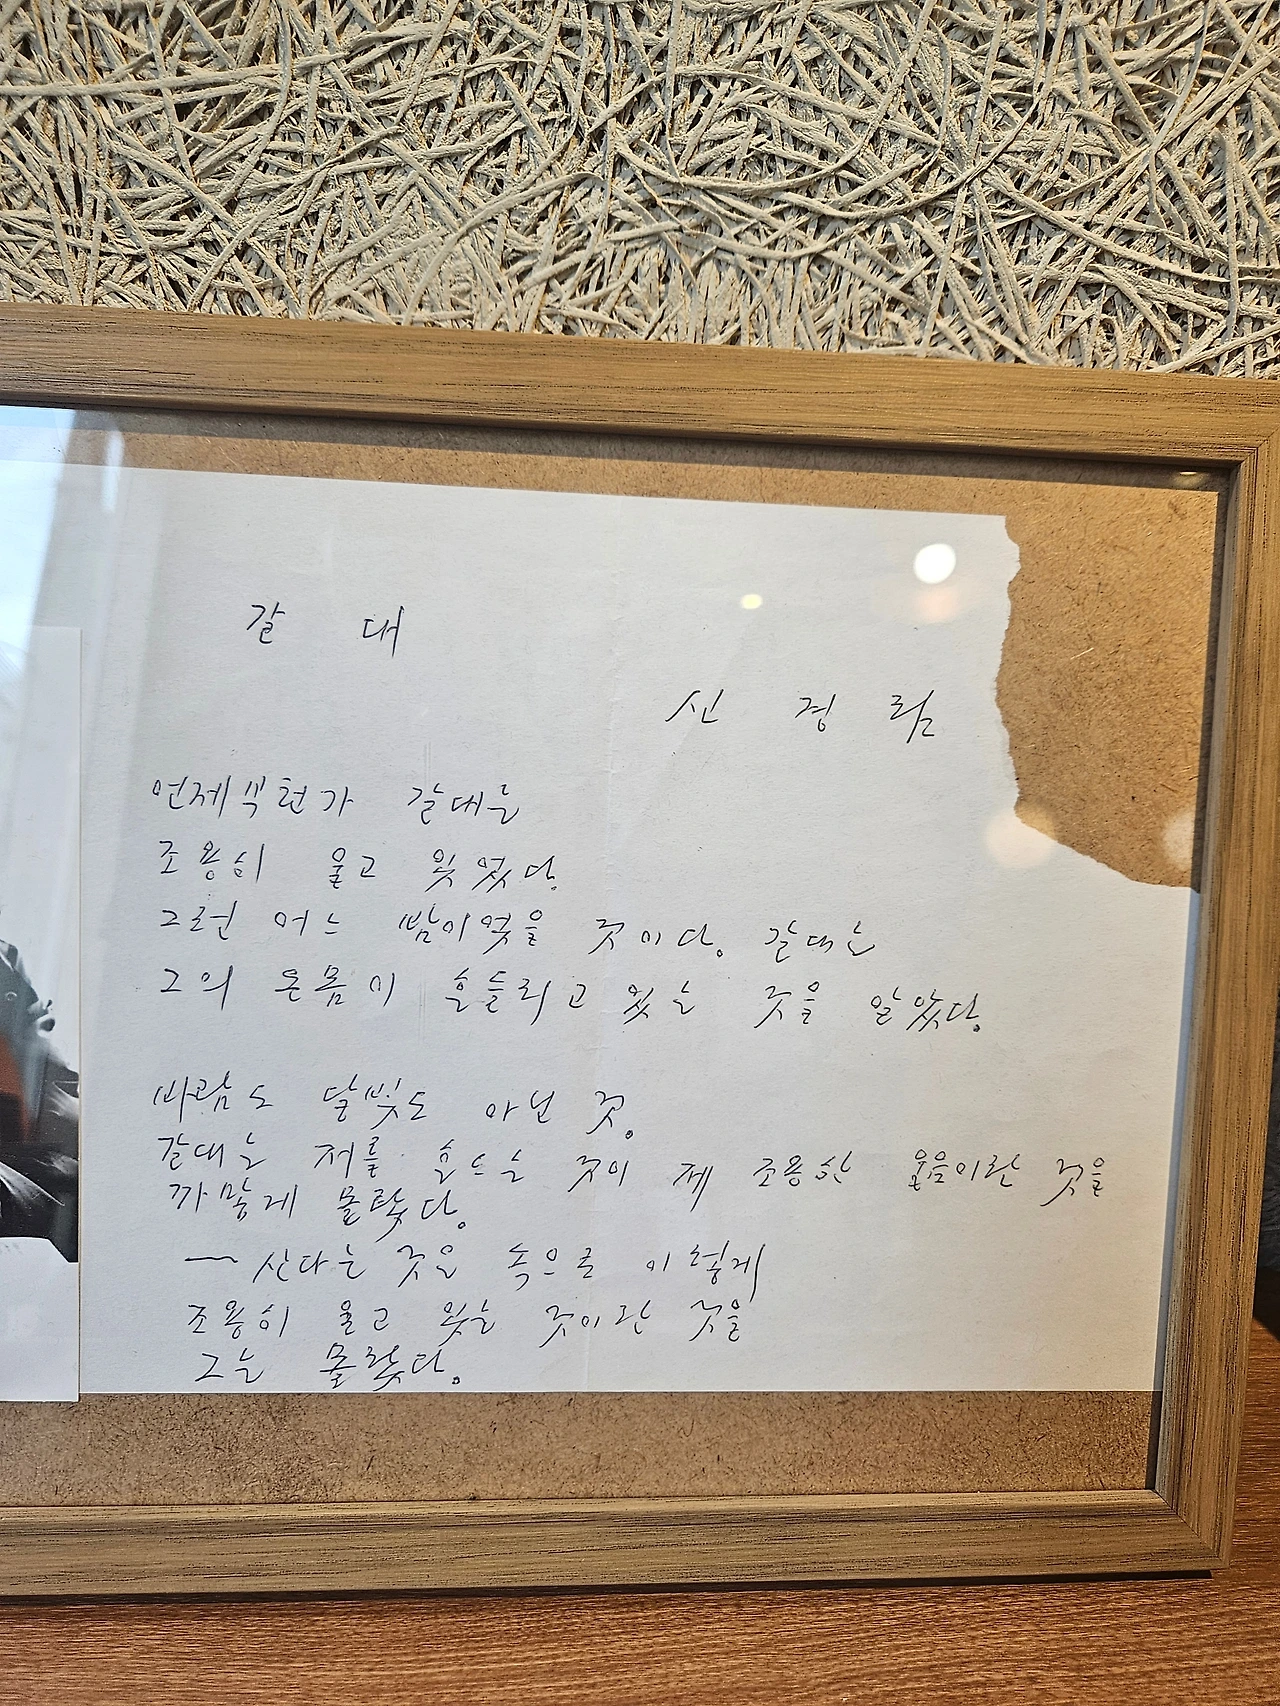 갈 대
신 경 림
언제부턴가 갈대는
조용히 울고 있었다.
그런 어느 밤이었을 것이다. 갈대는
그의 온몸이 흔들리고 있는 것을 알았다.
바람도 달빛도 아닌 것.
갈대는 저를 흔드는 것이 제 조용한 울음이란 것을
까맣게 몰랐다.
— 산다는 것은 속으로 이렇게
조용히 울고 있는 것이란 것을
그는 몰랐다.